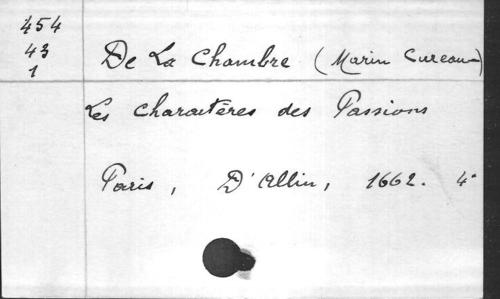 454
43
1
De La Chambre (Marin Cureau)
Les charactères des Passions
Paris, D'Allin, 1662. 4°